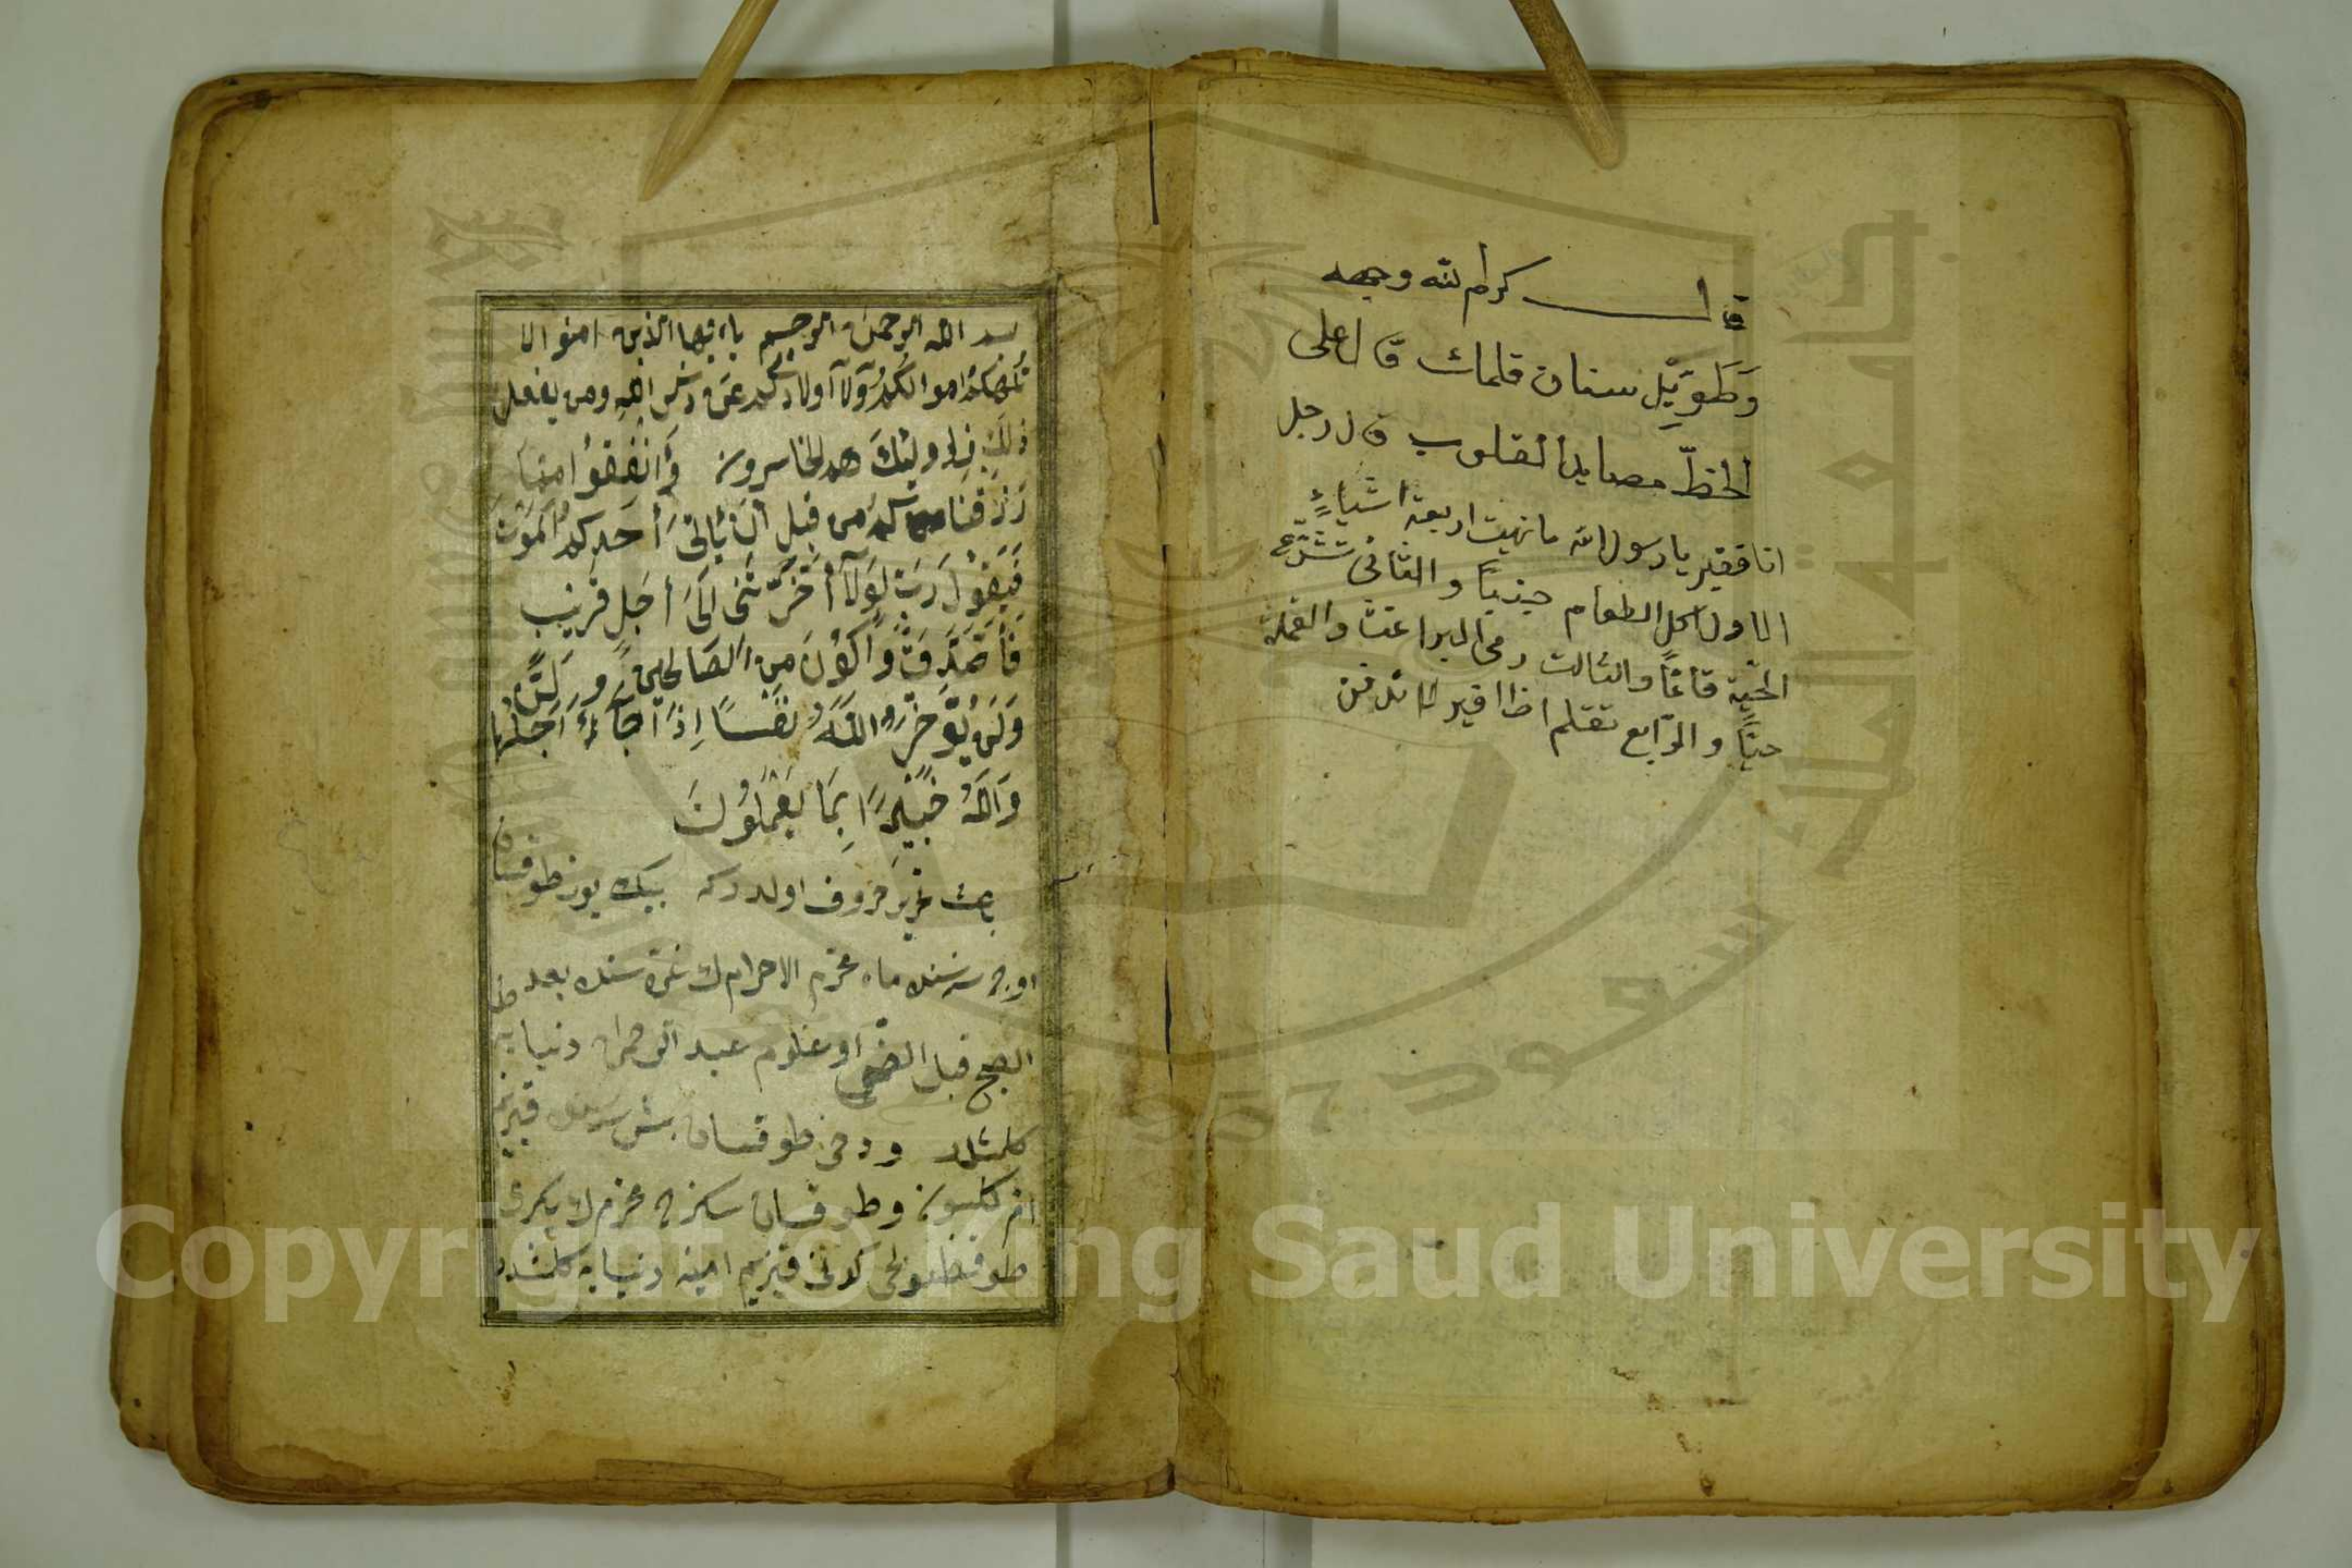 قال كرم الله وجهه
وَطَوِّيْلِ سنان قلمك قال على
الخطّ مصايد القلوب قال رجل
انا فقير يا رسول الله ما نهيت اربعة اشياءٍ
الاول اكل الطعام والثانى
الحيّة قائمًا والثالث رمى البراغث والقملة
حيًّا والرّابع تقلم اظافير لا تدفن
بسم الله الرحمن الرحيم ياايها الذين امنوا لا
تلهكم اموالكم وَلآ اولادكم عن ذكر الله ومن يفعل
ذلك فاولئِكَ هم الخاسرون وَاَنْفِقُوا مِمَّا
رَزَقْنَاكم من قبل اَنْ يَاْتِىَ أَحَدِكُمُ المَوْتُ
فَيَقُوْلَ رَبِّ لَوْلَآ أَخَّرْتَنِى اِلَىَ أَجَلٍ قَرِيْبٍ
فَأَصَّدَّقَ وَأَكُوْنَ مِنَ الصَالِحِيْنَ
وَلَنْ يُؤَخِّرَ اللَّهُ نَفْسًا اِذَا جَآءَ أَجَلُهَا
وَاللَّهُ خَبِيْرًا بِمَا يَعْمَلُوْنَ
باعث تحرير حروف اولدركه بيك يوز طوقسان
اوچ سنه سنده ماه محرم الاحرام ك غره سنده بعد
الصبح قبل الضحى اوغلوم عبد الرحمن دنيايه
كلمشدر ودخى طوقسان بش سنه قيزيم
ام كلثوم وطوقسان سكزده محرم ك يكرمى
قيزيم امينه دنيايه كلمشدر
جامعة الملك سعود
1957
Copyright © King Saud University